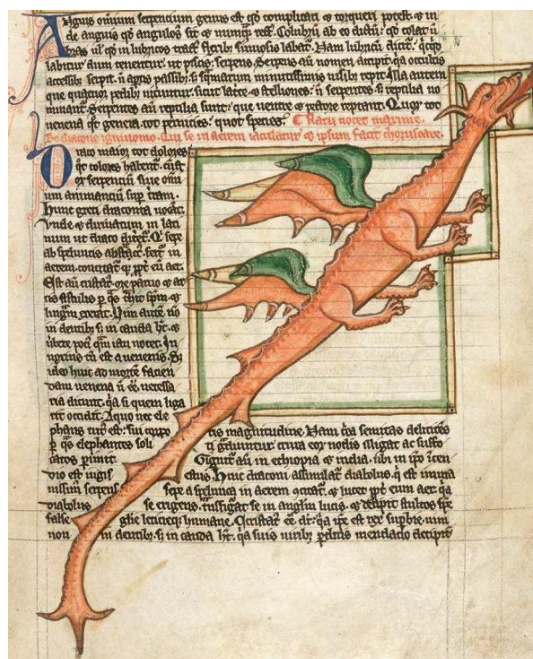 Anguis omnium serpentium genus est qd complicari et torqueri potest. et in
de anguis qd angulosus sit et numquam rectus. Colubrum ab eo dictum qd colat
bras ul qd in lubricos tractus flexibus sinuosis labatur. Nam lubricum dicitur quicquid
labitur dum tenetur. ut piscis. serpens. Serpens autem nomen accepit quia occultis
accessibus serpit. non apertis passibus sed squamarum minutissimis nisibus repit. illa autem
que quatuor pedibus nituntur. sicut lacerte et stelliones. non serpentes sed reptilia no
minantur. Serpentes autem reptilia sunt. que ventre et pectore reptant. Quorum tot
venena quot genera. tot pernicies. quot species.
De dracone ignivomo. Qui se in aerem iaculatur et ipsum facit choruscare.
Draco maior
serpentium sive omni
um animantium super terram.
Hunc greci draconta vocant.
Unde et derivatum in lati
num ut draco diceretur. Qui sepe
ab speluncis abstractus fertur in
aerem. concitaturque propter eum aer.
Est autem cristatus. ore parvo et ar
tis fistulis per quas trahit spiritum et
linguam exerat. Vim autem non
in dentibus sed in cauda habet. et
verbere potius quam ictu nocet. In
noxius tamen est a venenis. Sed
ideo huic ad mortem facien
dam venena non esse necessa
ria dicunt. quia si quem liga
rit occidit. A quo nec ele
phans tutus est sui corporis
magnitudine. Nam circa semitas delitescens
per quas elephantes soli
to gradiuntur crura eorum nodis illigat ac suffo
catos perimit. Gignitur autem in ethiopia et india. ubi in ipso incen
dio est iugis estus. Huic draconi assimilatur diabolus. qui est imma
nissimus serpens. sepe a spelunca in aerem
diabolus se erigens. transfigurat se in angelum lucis. et decipit stultos spe
false glorie leticieque humane. Cristatus esse dicitur. quia ipse est rex superbie. vim
non in dentibus sed in cauda habet. quia suis viribus perditis mendacio decipit